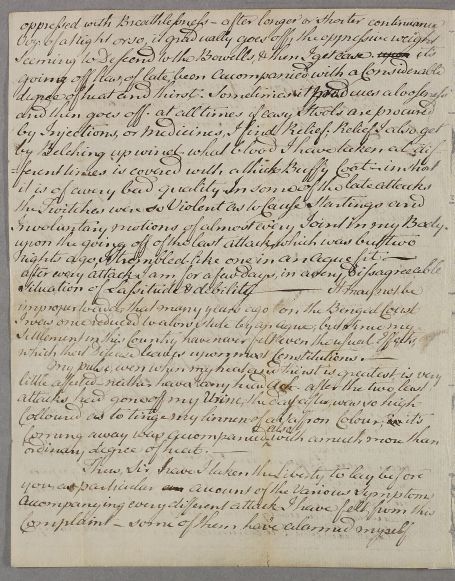 oppressed with Breathlessness – after longer or shorter continuance
day or a Night or so, it gradually goes off, the oppressive weight
seeming to descend to the Bowells, & then I get ease its
going off has, of late, been accompanied with a Considerable
degree of heat and thirst: Sometimes it produces a looseness
and then goes off – at all times if easy Stools are procured
by Injections, or medicines, I find Relief. Relief I also get
by Belching up wind – what blood I have taken at dif-
ferent times is covered with a thick Buffy Coat – in short
it is of a very bad quality – In some of the late attacks
the Twitches were so Violent as to Cause Startings and
Involuntary motions of almost every Joint in my Body.
upon the going off of the last attack, which was but two
nights ago, I trembled like one in an ague fit. –
after every attack I am for a few days, in a very disagreeable
Situation of Lassitude & debility — It may not be
improper to add that many years ago on the Bengal Coast
I was once reduced to a low State by an ague, but since my
Settlement in this Country have never felt even the usual Effects,
which that disease leaves upon most Constitutions. –
My pulse, even when my heat and thirst is greatest is very
little affected – neither have I any head ach – after the two last
attacks had gone off my Urine, the day after, was so high
Coloured as to tinge my linnen of a saffron Colour, its
Coming away was accompanied also with a much more than
ordinary degree of heat. —
Thus, Sir I have taken the Liberty to lay before
you as particular an account of the Various Symptoms
accompanying every different attack I have felt from this
Complaint – some of them have alarmed myself